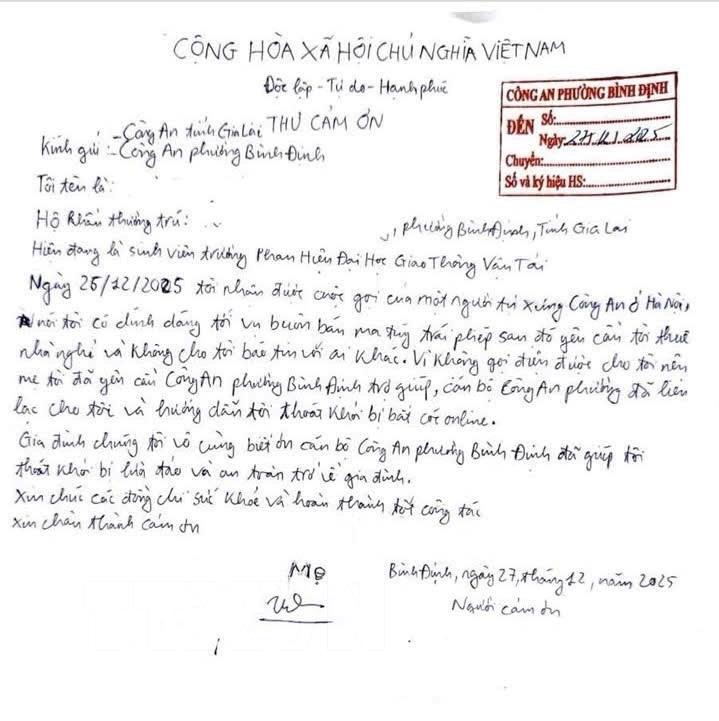 CỘNG HÒA XÃ HỘI CHỦ NGHĨA VIỆT NAM
Độc lập - Tự do - Hạnh phúc
CÔNG AN PHƯỜNG BÌNH ĐỊNH
ĐẾN Số:
Ngày: 27/12/2025
Chuyển:
Số và ký hiệu HS:
THƯ CẢM ƠN
Kính gửi: - Công An tỉnh Gia Lai
- Công An phường Bình Định
Tôi tên là:
Hộ khẩu thường trú: , phường Bình Định, Tỉnh Gia Lai
Hiện đang là sinh viên trường Phân Hiệu Đại Học Giao Thông Vận Tải
Ngày 25/12/2025 tôi nhận được cuộc gọi của một người tự xưng Công An ở Hà Nội,
nói tôi có dính dáng tới vụ buôn bán ma túy trái phép sau đó yêu cầu tôi thuê
nhà nghỉ và không cho tôi báo tin với ai khác. Vì không gọi điện được cho tôi nên
mẹ tôi đã yêu cầu Công An phường Bình Định trợ giúp, cán bộ Công An phường đã liên
lạc cho tôi và hướng dẫn tôi thoát khỏi bị bắt cóc online.
Gia đình chúng tôi vô cùng biết ơn cán bộ Công An phường Bình Định đã giúp tôi
thoát khỏi bị lừa đảo và an toàn trở về gia đình.
Xin chúc các đồng chí sức khỏe và hoàn thành tốt công tác
Xin chân thành cảm ơn
Mẹ
Bình Định, ngày 27, tháng 12, năm 2025
Người cảm ơn